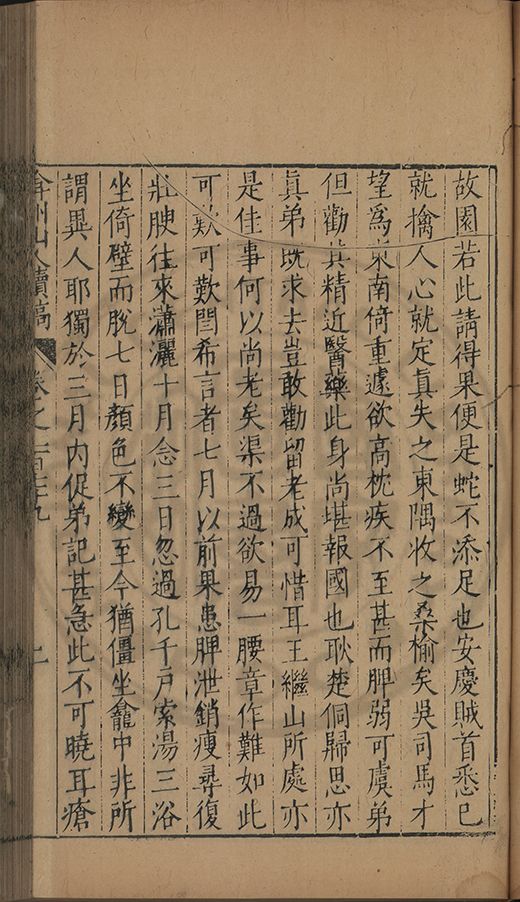 故園若此請得果便是蛇不添足也安慶賊首悉已
就擒人心就定眞失之東隅收之桑榆矣吳司馬才
望爲東南倚重遽欲高枕疾不至甚而脾弱可虞弟
但勸其精近醫藥此身尚堪報國也耿楚侗歸思亦
眞弟既求去豈敢勸留老成可惜耳王繼山所處亦
是佳事何以尚老矣渠不過欲易一腰章作難如此
可歎可歎閆希言者七月以前果患脾泄銷瘦尋復
壯腴往來瀟灑十月念三日忽過孔千戸索湯三浴
坐倚壁而脫七日顏色不變至今猶僵坐龕中非所
謂異人耶獨於三月內促弟記甚急此不可曉耳瘡
弇州山人續稿 卷之一百七十九 二